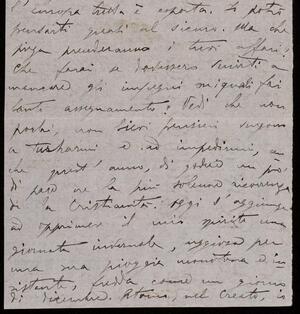 ancora trista è coperta. Io potrò
pensarti quasi al sicuro. Ma che
piega prenderanno i tuoi affari?
Che farai se dovessero venirti a
mancare gli impegni sui quali fai
tanto assegnamento? Vedi che non
pochi, non lievi pensieri sorgono
a turbarmi e ad impedirmi, an
che quest'anno, di godere un pò
di pace ne la più solenne ricorrenza
de la Cristianità: oggi s'aggiunge
ad opprimere il mio spirito una
giornata invernale, uggiosa per
una pioggia monotona e in
sistente, fredda come un giorno
di dicembre. nel Creato, è